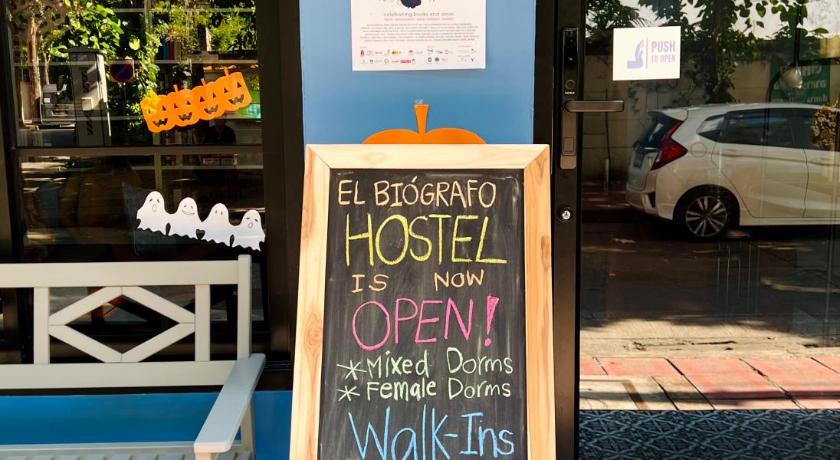 celebrating books and ideas
PUSH
TO OPEN
EL BIÓGRAFO
HOSTEL
IS NOW
OPEN!
*Mixed Dorms
*Female Dorms
Walk-Ins